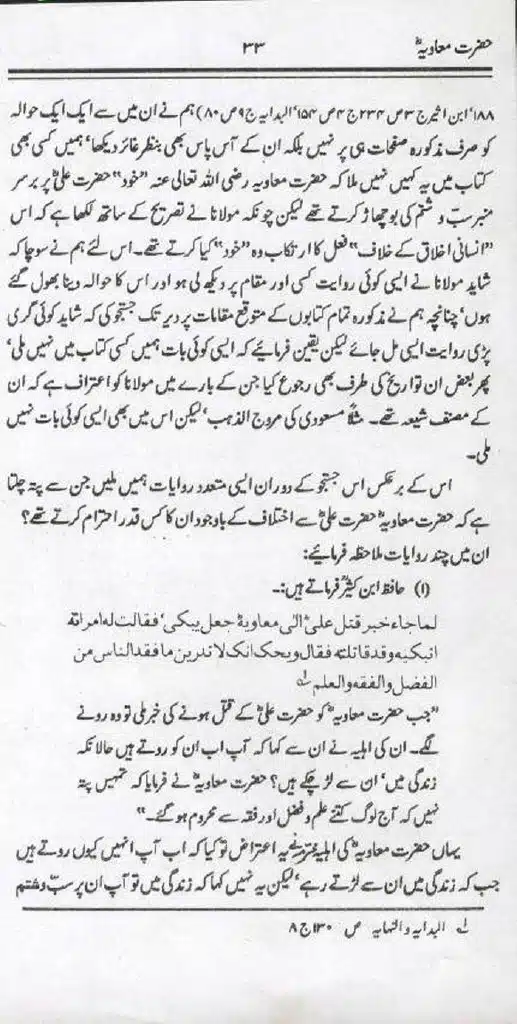 حضرت معاویہؓ
۳۳
۱۸۸‘ ابن اثیر ج ۳ ص ۲۳۴ ج ۴ ص ۱۵۴‘ البدایہ ج ۹ ص ۸۰) ہم نے ان میں سے ایک ایک حوالہ
کو صرف مذکورہ صفحات ہی پر نہیں بلکہ ان کے آس پاس بھی بنظر غائر دیکھا‘ ہمیں کسی بھی
کتاب میں یہ کہیں نہیں ملا کہ حضرت معاویہ رضی اللہ تعالی عنہ ”خود“ حضرت علیؓ پر برسر
منبر سبّ و شتم کی بوچھاڑ کرتے تھے لیکن چونکہ مولانا نے تصریح کے ساتھ لکھا ہے کہ اس
”انسانی اخلاق کے خلاف“ فعل کا ارتکاب وہ ”خود“ کیا کرتے تھے۔ اس لئے ہم نے سوچا کہ
شاید مولانا نے ایسی کوئی روایت کسی اور مقام پر دیکھ لی ہو اور اس کا حوالہ دینا بھول گئے
ہوں‘ چنانچہ ہم نے مذکورہ تمام کتابوں کے متوقع مقامات پر دیر تک جستجو کی کہ شاید کوئی گری
پڑی روایت ایسی مل جائے لیکن یقین فرمائیے کہ ایسی کوئی بات ہمیں کسی کتاب میں نہیں ملی‘
پھر بعض ان تواریخ کی طرف بھی رجوع کیا جن کے بارے میں مولانا کو اعتراف ہے کہ ان
کے مصنف شیعہ تھے۔ مثلاً مسعودی کی مروج الذہب‘ لیکن اس میں بھی ایسی کوئی بات نہیں
ملی۔
اس کے برعکس اس جستجو کے دوران ایسی متعدد روایات ہمیں ملیں جن سے پتہ چلتا
ہے کہ حضرت معاویہؓ حضرت علیؓ سے اختلاف کے باوجود ان کا کس قدر احترام کرتے تھے؟
ان میں چند روایات ملاحظہ فرمائیے:
(۱) حافظ ابن کثیرؒ فرماتے ہیں:۔
لما جاء خبر قتل علیؓ الی معاویۃ جعل یبکی‘ فقالت لہ امراتہ
اتبکیہ وقد قاتلتہ فقال ویحک انک لا تدرین ما فقد الناس من
الفضل والفقہ والعلم ؎۱
”جب حضرت معاویہؓ کو حضرت علیؓ کے قتل ہونے کی خبر ملی تو وہ رونے
لگے۔ ان کی اہلیہ نے ان سے کہا کہ آپ اب ان کو روتے ہیں حالانکہ
زندگی میں‘ ان سے لڑ چکے ہیں؟ حضرت معاویہؓ نے فرمایا کہ تمہیں پتہ
نہیں کہ آج لوگ کتنے علم و فضل اور فقہ سے محروم ہو گئے۔“
یہاں حضرت معاویہؓ کی اہلیہ محترمہ نے یہ اعتراض تو کیا کہ اب آپ انہیں کیوں روتے ہیں
جب کہ زندگی میں ان سے لڑتے رہے‘ لیکن یہ نہیں کہا کہ زندگی میں تو آپ ان پر سبّ و شتم
؎۱ البدایہ والنہایہ ص ۱۳۰ ج ۸